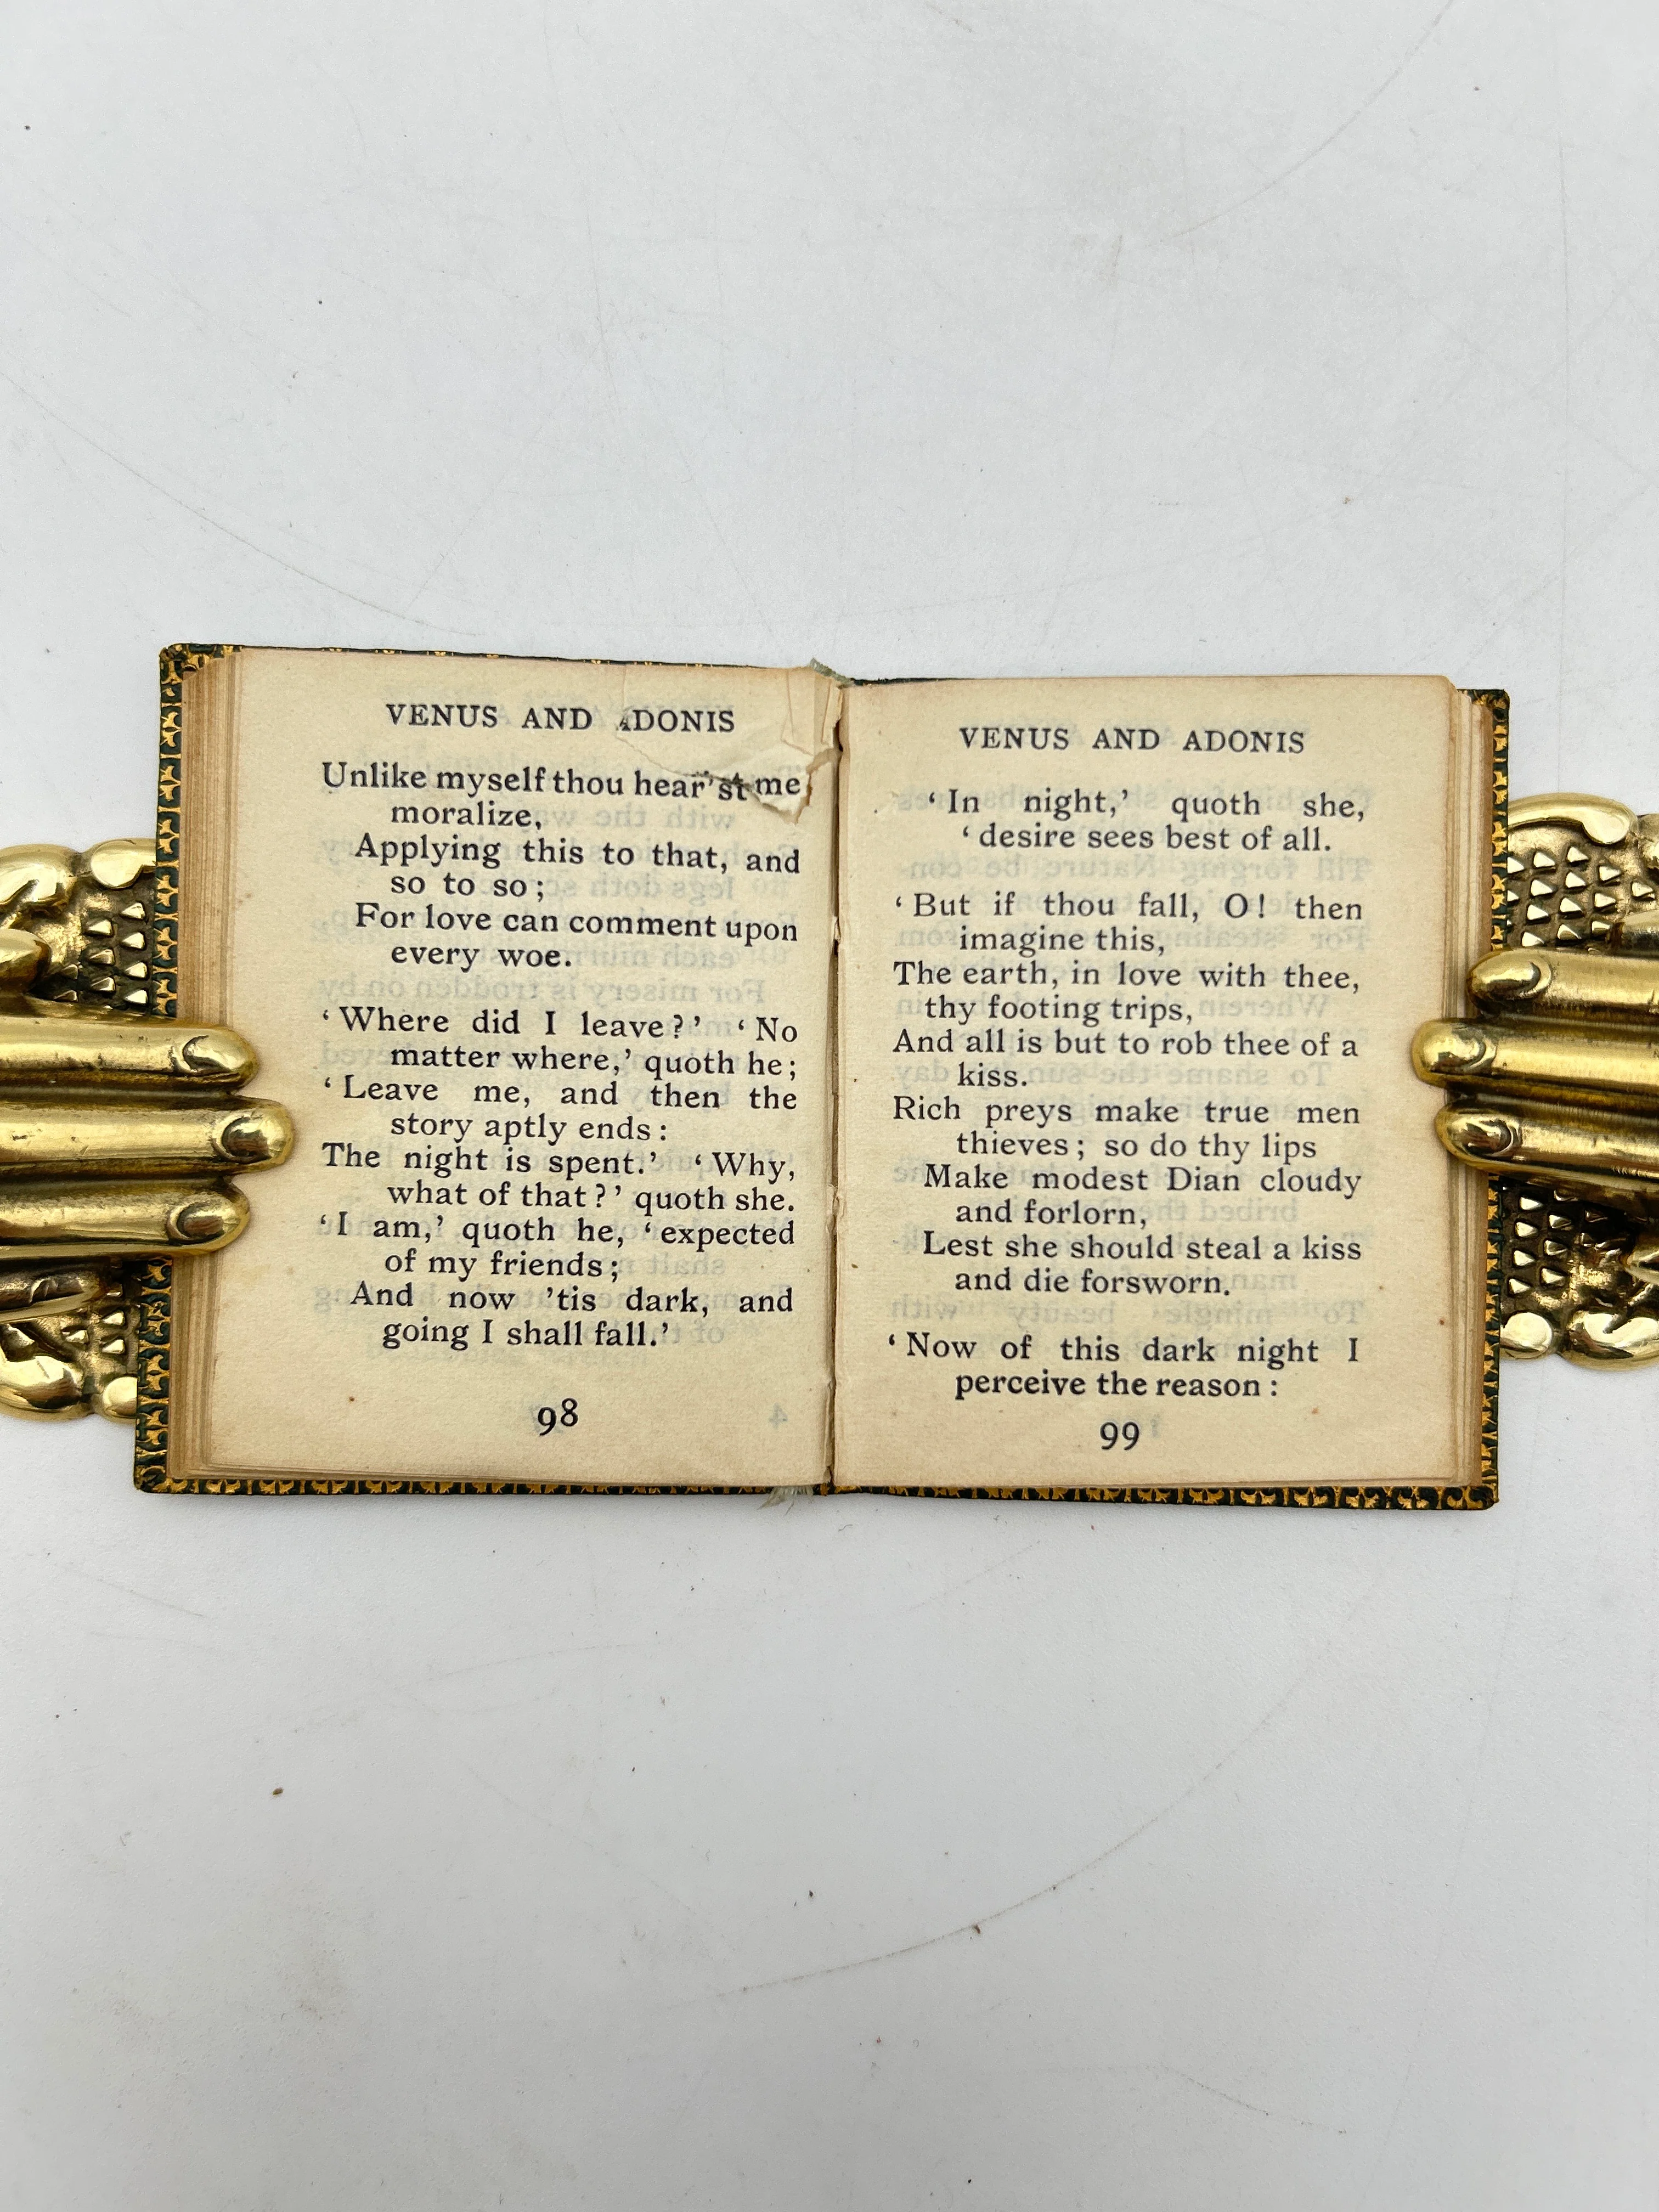 VENUS AND ADONIS
Unlike myself thou hear'st me
moralize,
Applying this to that, and
so to so;
For love can comment upon
every woe.
‘Where did I leave?’ ‘No
matter where,’ quoth he;
‘Leave me, and then the
story aptly ends:
The night is spent.’ ‘Why,
what of that?’ quoth she.
‘I am,’ quoth he, ‘expected
of my friends;
And now ’tis dark, and
going I shall fall.’
98
VENUS AND ADONIS
‘In night,’ quoth she,
‘desire sees best of all.
‘But if thou fall, O! then
imagine this,
The earth, in love with thee,
thy footing trips,
And all is but to rob thee of a
kiss.
Rich preys make true men
thieves; so do thy lips
Make modest Dian cloudy
and forlorn,
Lest she should steal a kiss
and die forsworn.
‘Now of this dark night I
perceive the reason:
99